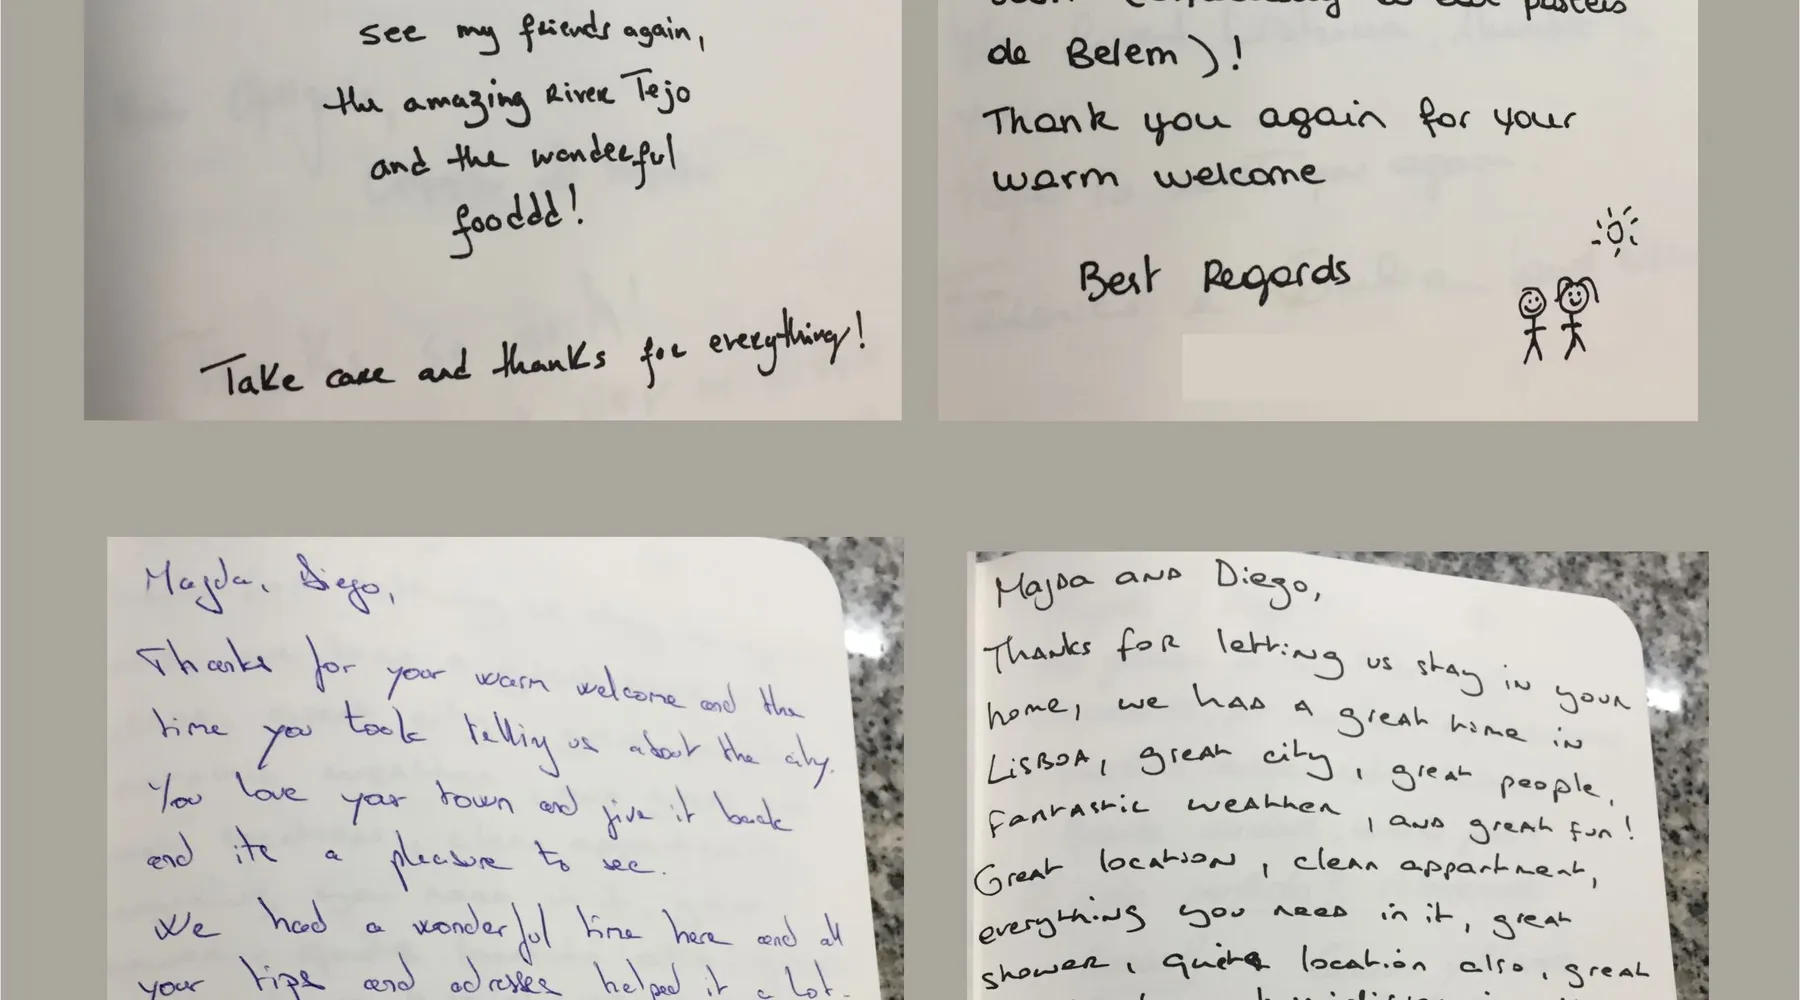 see my friends again,
the amazing River Tejo
and the wonderful
fooddd!
Take care and thanks for everything!
pasteis
de Belem)!
Thank you again for your
warm welcome
Best Regards
Magda, Diego,
Thanks for your warm welcome and the
time you took telling us about the city.
You love your town and give it back
and it's a pleasure to see.
We had a wonderful time here and all
your tips and adresses helped it a lot.
Magda and Diego,
Thanks for letting us stay in your
home, we had a great time in
Lisboa, great city, great people,
fantastic weather, and great fun!
Great location, clean appartment,
everything you need in it, great
shower, quite location also, great